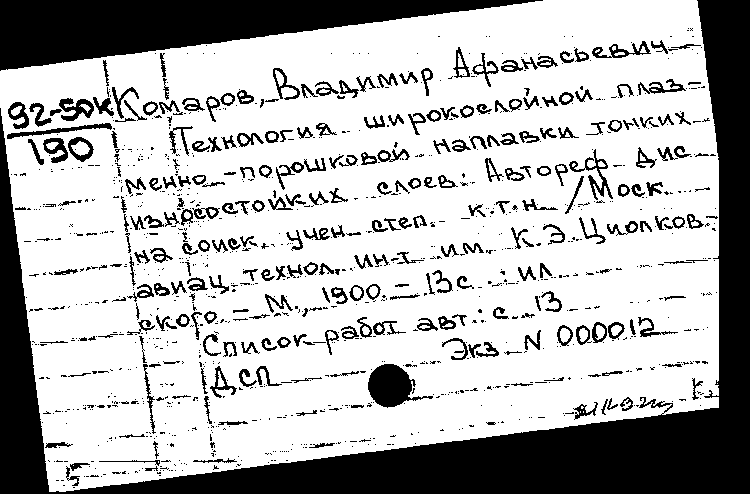 92-50К
190
Комаров, Владимир Афанасьевич
Технология широкослойной плаз-
менно-порошковой наплавки тонких
износостойких слоев: Автореф дис
на соиск. учен степ. к.т.н. /Моск.
авиац. технол. ин-т им. К.Э.Циолков-
ского. - М., 1900. - 13с. : ил
Список работ авт.: с. 13
Экз. N 000012
ДСП
К.
5